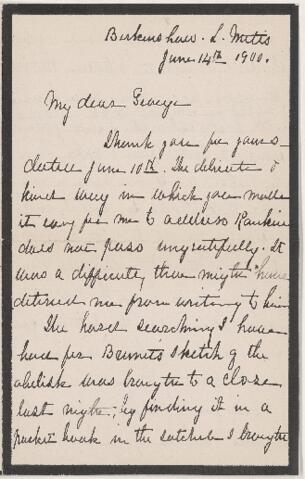 Birkenshaw. L. Mills
June 14th 1900.
My dear George
Thank you for yours
dated June 10th. The delicate &
kind way in which you made
it easy for me to address Rankin
does not pass ungratefully. It
was a difficulty that might have
deterred me from writing to him
The hard searching I have
had for Brunet's sketch of the
obelisk was brought to a close
last night, by finding it in a
pocket book in the satchel I brought